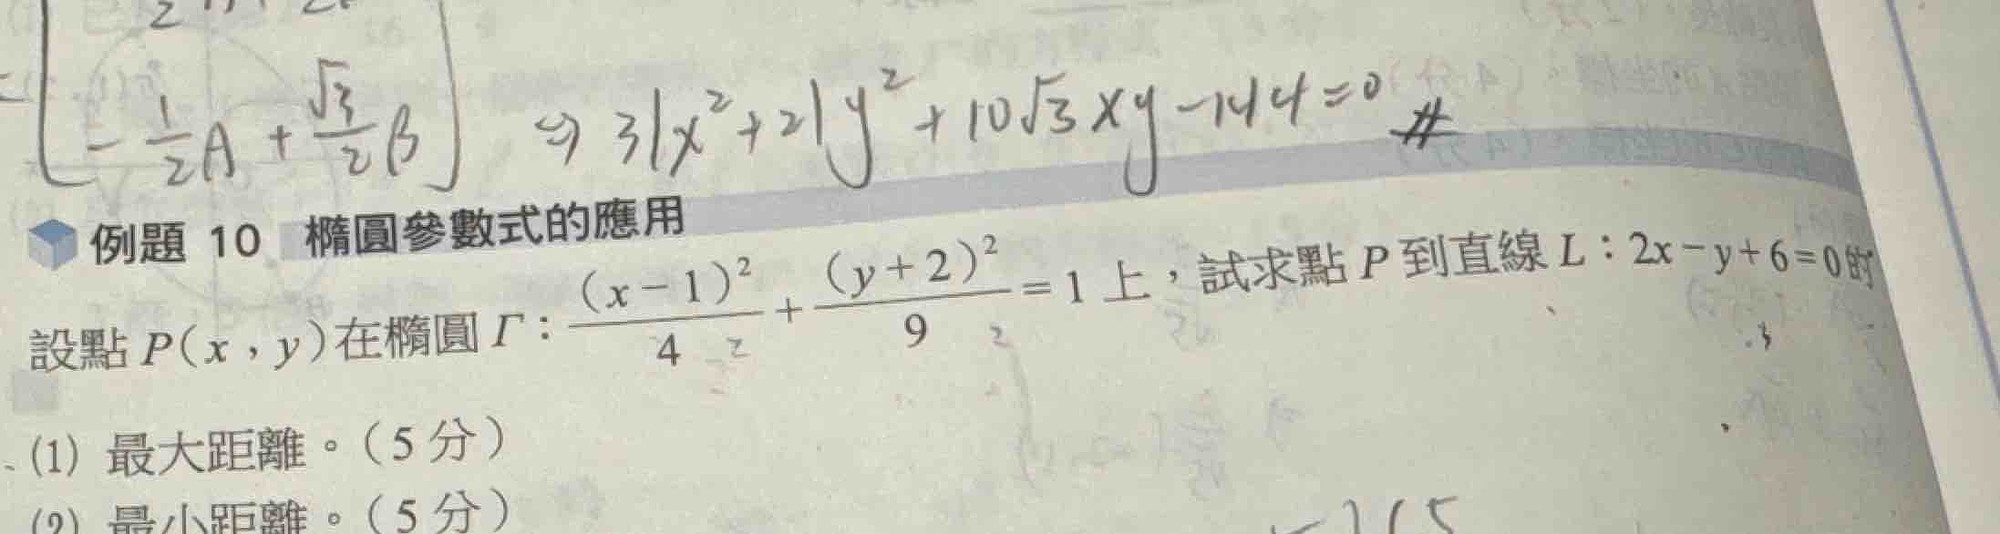 - 1/2 A + √3/2 B ⇒ 31x² + 21y² + 10√3xy - 144 = 0 #
例題 10 橢圓參數式的應用
設點 P(x,y)在橢圓 Γ:(x-1)²/4 + (y+2)²/9 = 1 上,試求點 P 到直線 L:2x-y+6=0的
(1) 最大距離。(5 分)
(2) 最小距離。(5 分)